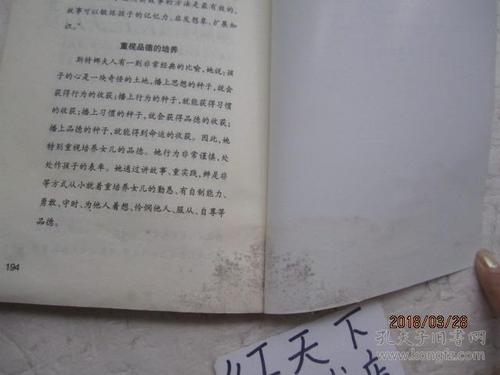 故事可以锻炼孩子的记忆力，启发想象，扩展知
识。”
重视品德的培养
斯特娜夫人有一则非常经典的比喻，她说：孩
子的心是一块奇怪的土地，播上思想的种子，就会
获得行为的收获；播上行为的种子，就能获得习惯
的收获；播上习惯的种子，就会获得品德的收获；
播上品德的种子，就能得到命运的收获。因此，她
特别重视培养女儿的品德。她行为非常谨慎，处
处作孩子的表率。她通过讲故事、重实践，辨是非
等方式从小就着重培养女儿的勤恳、有自制能力、
勇敢、守时、为他人着想、怜悯他人、服从、自尊等
品德。
194
2018/03/28
孔夫子旧书网
www.kongfz.com
红天下
书店